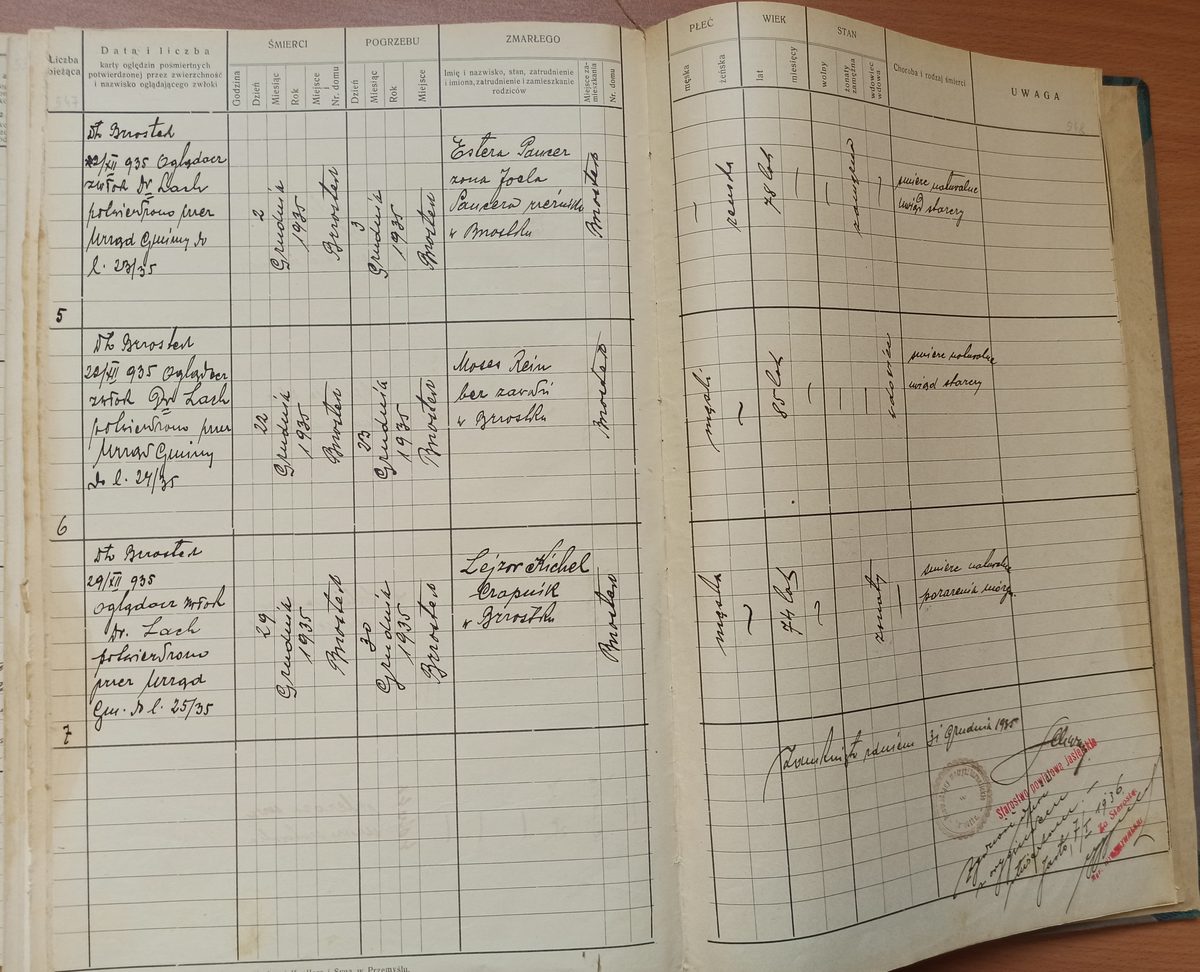 Liczba bieżąca
Data i liczba
karty oględzin pośmiertnych
potwierdzonej przez zwierzchność
i nazwisko oglądającego zwłoki
ŚMIERCI
Godzina
Dzień
Miesiąc
Rok
Miejsce i Nr. domu
POGRZEBU
Dzień
Miesiąc
Rok
Miejsce
ZMARŁEGO
Imię i nazwisko, stan, zatrudnienie
i imiona, zatrudnienie i zamieszkanie
rodziców
Miejsce zamieszkania
Nr. domu
PŁEĆ
męska
żeńska
WIEK
lat
miesięcy
STAN
wolny
żonaty zamężna
wdowiec wdowa
Choroba i rodzaj śmierci
UWAGA
5
Dto Brzostek
2/XII 935 Oglądacz
zwłok Dr Lach
potwierdzono przez
Urząd Gminy do
l. 23/35
2
Grudnia
1935
Brzostek
3
Grudnia
1935
Brzostek
Estera Pancer
zona Joela
Pancera
w Brzostku
Brzostek
zenska
78 lat
zamezna
smierc naturalne
uwiąd starczy
6
Dto Brzostek
22/XII 935 Oglądacz
zwłok Dr Lach
potwierdzono przez
Urząd Gminy
do l. 24/35
22
Grudnia
1935
Brzostek
23
Grudnia
1935
Brzostek
Moses Rein
bez zawodu
w Brzostku
Brzostek
męski
85 lat
wdowiec
smierc naturalne
uwiąd starczy
7
Dto Brzostek
29/XII 935
Oglądacz zwłok
Dr. Lach
potwierdzono
przez Urząd
Gm. do l. 25/35
29
Grudnia
1935
Brzostek
30
Grudnia
1935
Brzostek
Lejzor Kichel
Czapnik
w Brzostku
Brzostek
męska
74 lat
zonaty
smierc naturalne
porazenia mózgu
Zamknięto z dniem 31 Grudnia 1935
Starostwo powiatowe Jasielskie
Jasło, 7/I 1936.
Za Starostę
w Przemyślu.